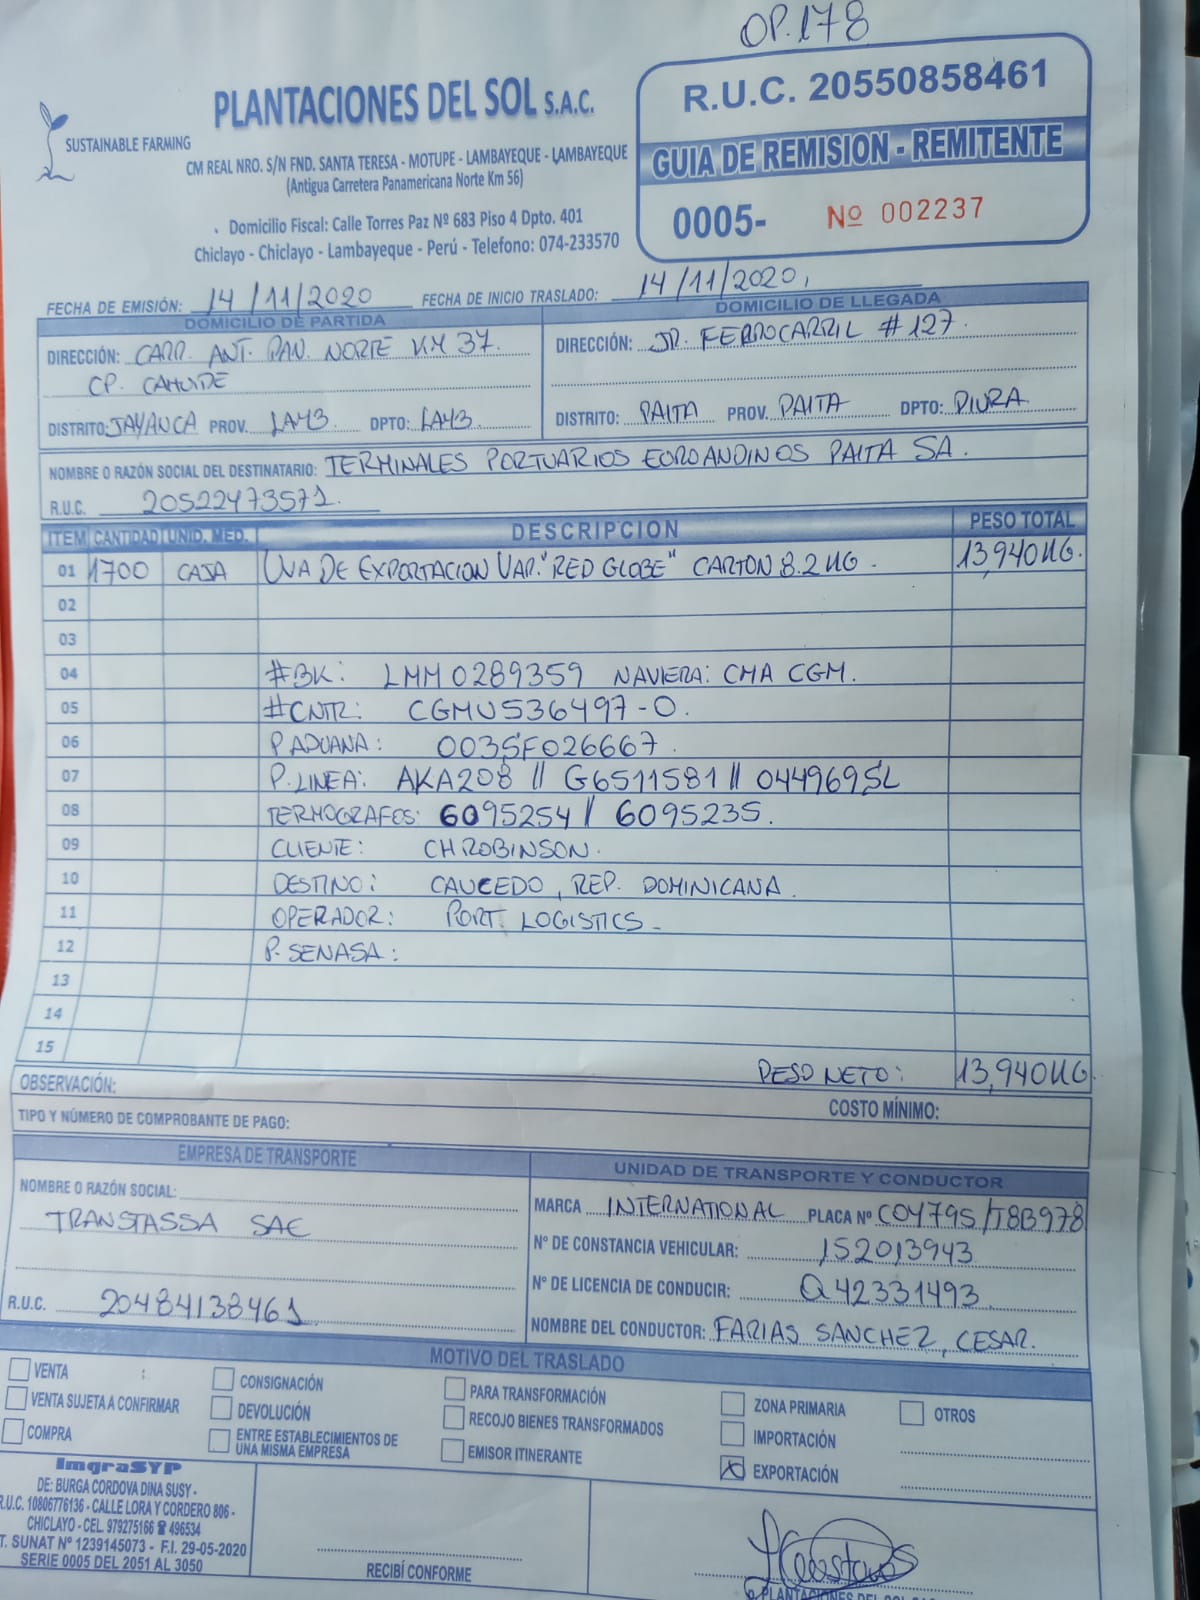 OP.178
PLANTACIONES DEL SOL S.A.C.
SUSTAINABLE FARMING
CM REAL NRO. S/N FND. SANTA TERESA - MOTUPE - LAMBAYEQUE - LAMBAYEQUE
(Antigua Carretera Panamericana Norte Km 56)
Domicilio Fiscal: Calle Torres Paz Nº 683 Piso 4 Dpto. 401
Chiclayo - Chiclayo - Lambayeque - Perú - Telefono: 074-233570
R.U.C. 20550858461
GUIA DE REMISION - REMITENTE
0005- Nº 002237
FECHA DE EMISIÓN: 14/11/2020 FECHA DE INICIO TRASLADO: 14/11/2020,
DOMICILIO DE PARTIDA
DIRECCIÓN: CARR. ANT. PAN. NORTE KM 37.
CP. CAHUIDE
DISTRITO: JAYANCA PROV. LAMB. DPTO: LAMB.
DOMICILIO DE LLEGADA
DIRECCIÓN: JR. FERROCARRIL #127.
DISTRITO: PAITA PROV. PAITA DPTO: PIURA
NOMBRE O RAZÓN SOCIAL DEL DESTINATARIO: TERMINALES PORTUARIOS EUROANDINOS PAITA SA.
R.U.C. 20522473571.
ITEM CANTIDAD UNID. MED. DESCRIPCION PESO TOTAL
01 1700 CAJA UVA DE EXPORTACION VAR. "RED GLOBE" CARTON 8.2 KG. 13,940KG.
02
03
04 #BK: LMM0289359 NAVIERA: CMA CGM.
05 #CNTR: CGMU536497-0.
06 P ADUANA: 0035F026667.
07 P. LINEA: AKA208 // G6511581 // 044969SL
08 TERMOGRAFOS: 6095254 / 6095235.
09 CLIENTE: CH ROBINSON.
10 DESTINO: CAUCEDO, REP. DOMINICANA.
11 OPERADOR: PORT. LOGISTICS.
12 P. SENASA:
13
14
15
PESO NETO: 13,940KG.
OBSERVACIÓN:
TIPO Y NÚMERO DE COMPROBANTE DE PAGO: COSTO MÍNIMO:
EMPRESA DE TRANSPORTE
NOMBRE O RAZÓN SOCIAL:
TRANSTASSA SAC
R.U.C. 20484138461
UNIDAD DE TRANSPORTE Y CONDUCTOR
MARCA INTERNATIONAL PLACA Nº COY795/T8B978
Nº DE CONSTANCIA VEHICULAR: 152013943
Nº DE LICENCIA DE CONDUCIR: Q42331493
NOMBRE DEL CONDUCTOR: FARIAS SANCHEZ, CESAR.
MOTIVO DEL TRASLADO
VENTA
VENTA SUJETA A CONFIRMAR
COMPRA
CONSIGNACIÓN
DEVOLUCIÓN
ENTRE ESTABLECIMIENTOS DE
UNA MISMA EMPRESA
PARA TRANSFORMACIÓN
RECOJO BIENES TRANSFORMADOS
EMISOR ITINERANTE
ZONA PRIMARIA
IMPORTACIÓN
X EXPORTACIÓN
OTROS
ImgraSYP
DE: BURGA CORDOVA DINA SUSY -
R.U.C. 10806776136 - CALLE LORA Y CORDERO 806 -
CHICLAYO - CEL. 979275166 ☎ 496534
T. SUNAT Nº 1239145073 - F.I. 29-05-2020
SERIE 0005 DEL 2051 AL 3050
RECIBÍ CONFORME
p. PLANTACIONES DEL SOL